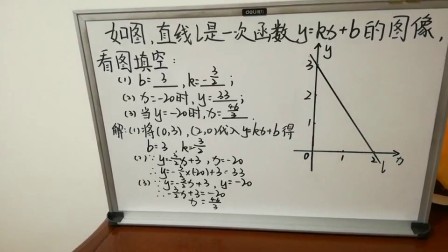 如图,直线l是一次函数y=kx+b的图像,
看图填空:
(1) b=3,k=-3/2;
(2) x=-20时,y=33;
(3)当y=-20时,x=46/3
解:(1)将(0,3),(2,0)代入y=kx+b得
b=3 k=-3/2
(2)∵y=-3/2x+3,x=-20
∴y=-3/2×(-20)+3=33
(3)∵y=-3/2x+3,y=-20
∴-3/2x+3=-20
x=46/3
y
3
2
1
0 1 2 x
l